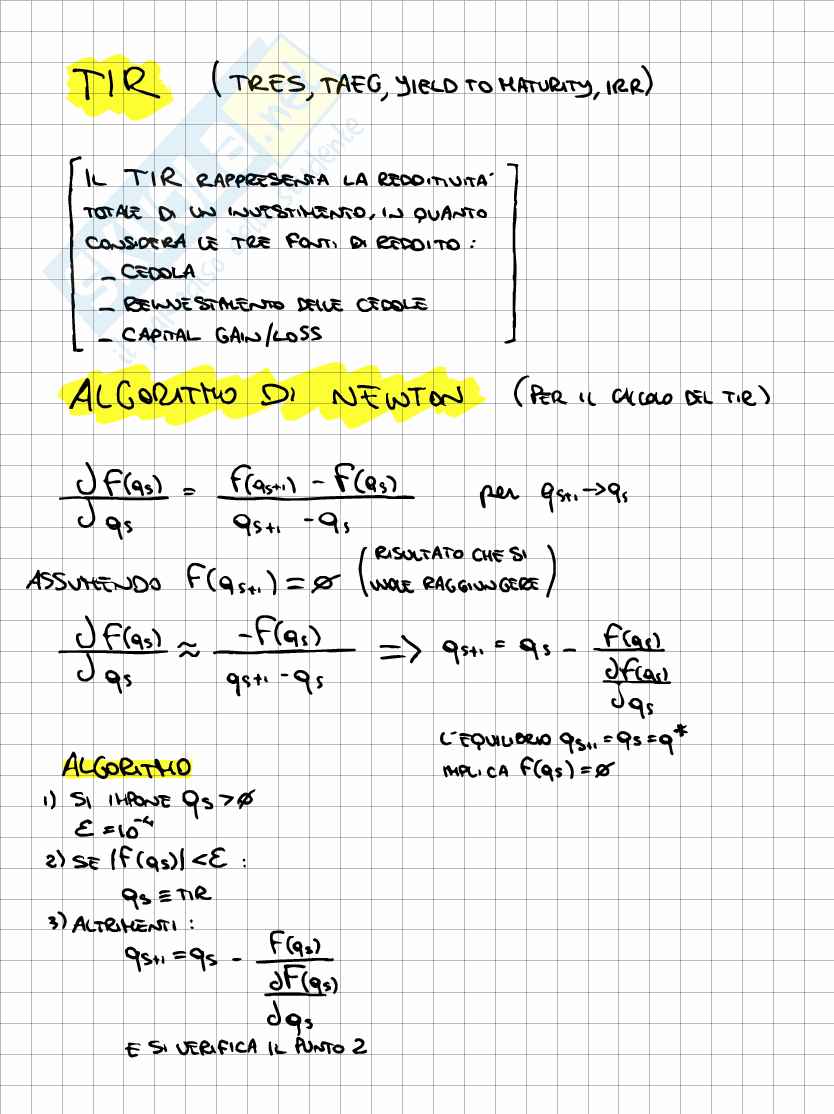 TIR (TRES, TAEG, YIELD TO MATURITY, IRR)
IL TIR RAPPRESENTA LA REDDITIVITA'
TOTALE DI UN INVESTIMENTO, IN QUANTO
CONSIDERA LE TRE FONTI DI REDDITO :
- CEDOLA
- REINVESTIMENTO DELLE CEDOLE
- CAPITAL GAIN/LOSS
ALGORITMO DI NEWTON (PER IL CALCOLO DEL TIR)
∂F(qs)/∂qs = (F(qs+1) - F(qs))/(qs+1 - qs) per qs+1 → qs
ASSUMENDO F(qs+1) = ø (RISULTATO CHE SI
VUOLE RAGGIUNGERE)
∂F(qs)/∂qs ≈ -F(qs)/(qs+1 - qs) => qs+1 = qs - F(qs)/(∂F(qs)/∂qs)
L'EQUILIBRIO qs+1 = qs = q*
IMPLICA F(qs) = ø
ALGORITMO
1) SI IMPONE qs > ø
ε = 10⁻⁴
2) SE |F(qs)| < ε :
qs ≡ TIR
3) ALTRIMENTI :
qs+1 = qs - F(qs)/(∂F(qs)/∂qs)
E SI VERIFICA IL PUNTO 2
SKUOLA.net